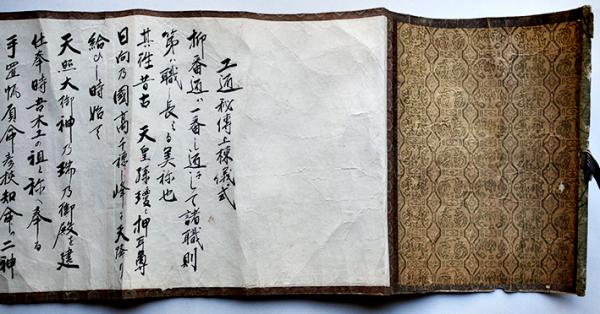 工道秘傳上棟儀式
抑番匠ハ一番之道ニして諸職則
第一ハ職の長たる美称也
其姓昔古天皇孫瓊々杵尊
日向乃國高千穂之峰に天降り
給ひし時始て
天照大御神乃瑞乃御殿を建
仕奉時吾木工の祖と称へ奉る
手置帆負命彦狭知命ノ二神